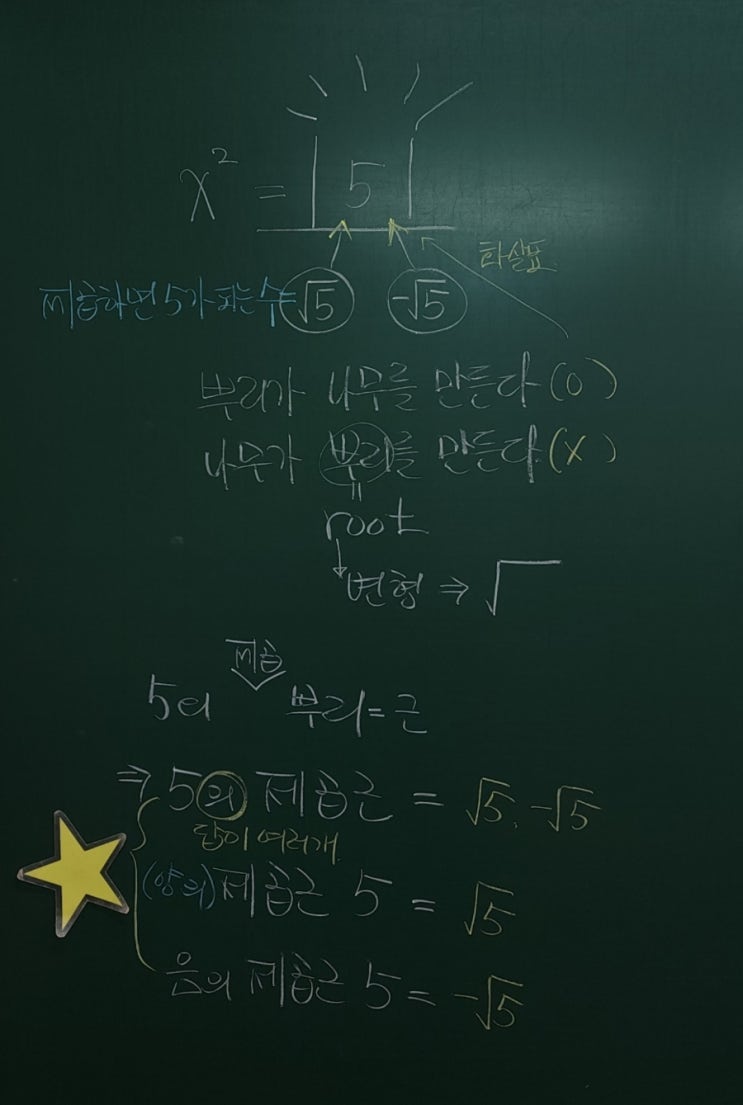 x² = 5
화살표
제곱하면 5가 되는 수 = √5 -√5
뿌리가 나무를 만든다 (O)
나무가 뿌리를 만든다 (X)
"
root
변형 ⇒ √
제곱
5의 뿌리 = 근
⇒ 5의 제곱근 = √5, -√5
답이 여러개
(양의) 제곱근 5 = √5
음의 제곱근 5 = -√5